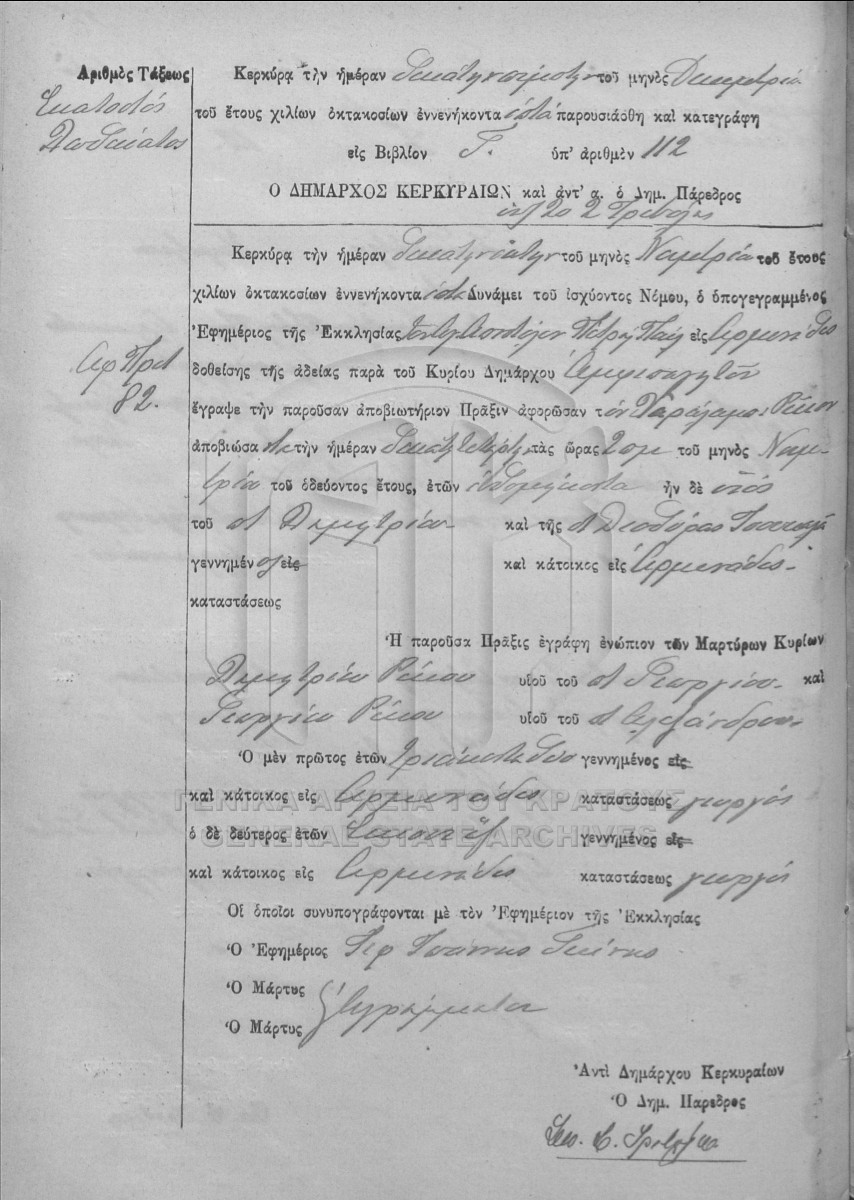 Ἀριθμὸς Τάξεως
Ἑκατοστός
Δωδέκατος
Κερκύρᾳ τὴν ἡμέραν δεκάτην πέμπτην τοῦ μηνὸς Δεκεμβρίου
τοῦ ἔτους χιλίων ὀκτακοσίων ἐννενήκοντα ἑπτὰ παρουσιάσθη καὶ κατεγράφη
εἰς Βιβλίον Γ. ὑπ' ἀριθμὸν 112
Ὁ ΔΗΜΑΡΧΟΣ ΚΕΡΚΥΡΑΙΩΝ καὶ ἀντ' α. ὁ Δημ. Πάρεδρος
Κερκύρᾳ τὴν ἡμέραν τοῦ μηνὸς Νοεμβρίου τοῦ ἔτους
χιλίων ὀκτακοσίων ἐννενήκοντα ἑπτὰ Δυνάμει τοῦ ἰσχύοντος Νόμου, ὁ ὑπογεγραμμένος
Ἐφημέριος τῆς Ἐκκλησίας τῶν Ἁγ. Ἀποστόλων Πέτρου Παύλ εἰς Ἀρμενάδες
Ἀρ Πρωτ
82.
δοθείσης τῆς ἀδείας παρὰ τοῦ Κυρίου Δημάρχου
ἔγραψε τὴν παροῦσαν ἀποβιωτήριον Πρᾶξιν ἀφορῶσαν τὸν Χαράλαμπον Ρίκον
ἀποβιώσαντα τὴν ἡμέραν δεκάτην τετάρτην τὰς ὥρας 2 τοῦ μηνὸς Νοεμ-
βρίου τοῦ ὁδεύοντος ἔτους, ἐτῶν ἑβδομήκοντα ἦν δὲ υἱὸς
τοῦ Δημητρίου καὶ τῆς Θεοδώρας
γεννημένος εἰς καὶ κάτοικος εἰς Ἀρμενάδες
καταστάσεως
Ἡ παροῦσα Πρᾶξις ἐγράφη ἐνώπιον τῶν Μαρτύρων Κυρίων
Δημητρίου Ρίκου υἱοῦ τοῦ Γεωργίου καὶ
Γεωργίου Ρίκου υἱοῦ τοῦ Ἀλεξάνδρου
Ὁ μὲν πρῶτος ἐτῶν τριάκοντα δύο γεννημένος εἰς
καὶ κάτοικος εἰς Ἀρμενάδες καταστάσεως γεωργὸς
ὁ δὲ δεύτερος ἐτῶν εἴκοσι ἓξ γεννημένος εἰς
καὶ κάτοικος εἰς Ἀρμενάδες καταστάσεως γεωργὸς
Οἱ ὁποῖοι συνυπογράφονται μὲ τὸν Ἐφημέριον τῆς Ἐκκλησίας
Ὁ Ἐφημέριος Ἱερ Ἰωάννης
Ὁ Μάρτυς
ἀγράμματοι
Ὁ Μάρτυς
Ἀντὶ Δημάρχου Κερκυραίων
Ὁ Δημ. Πάρεδρος
ΓΕΝΙΚΑ ΑΡΧΕΙΑ ΤΟΥ ΚΡΑΤΟΥΣ
GENERAL STATE ARCHIVES